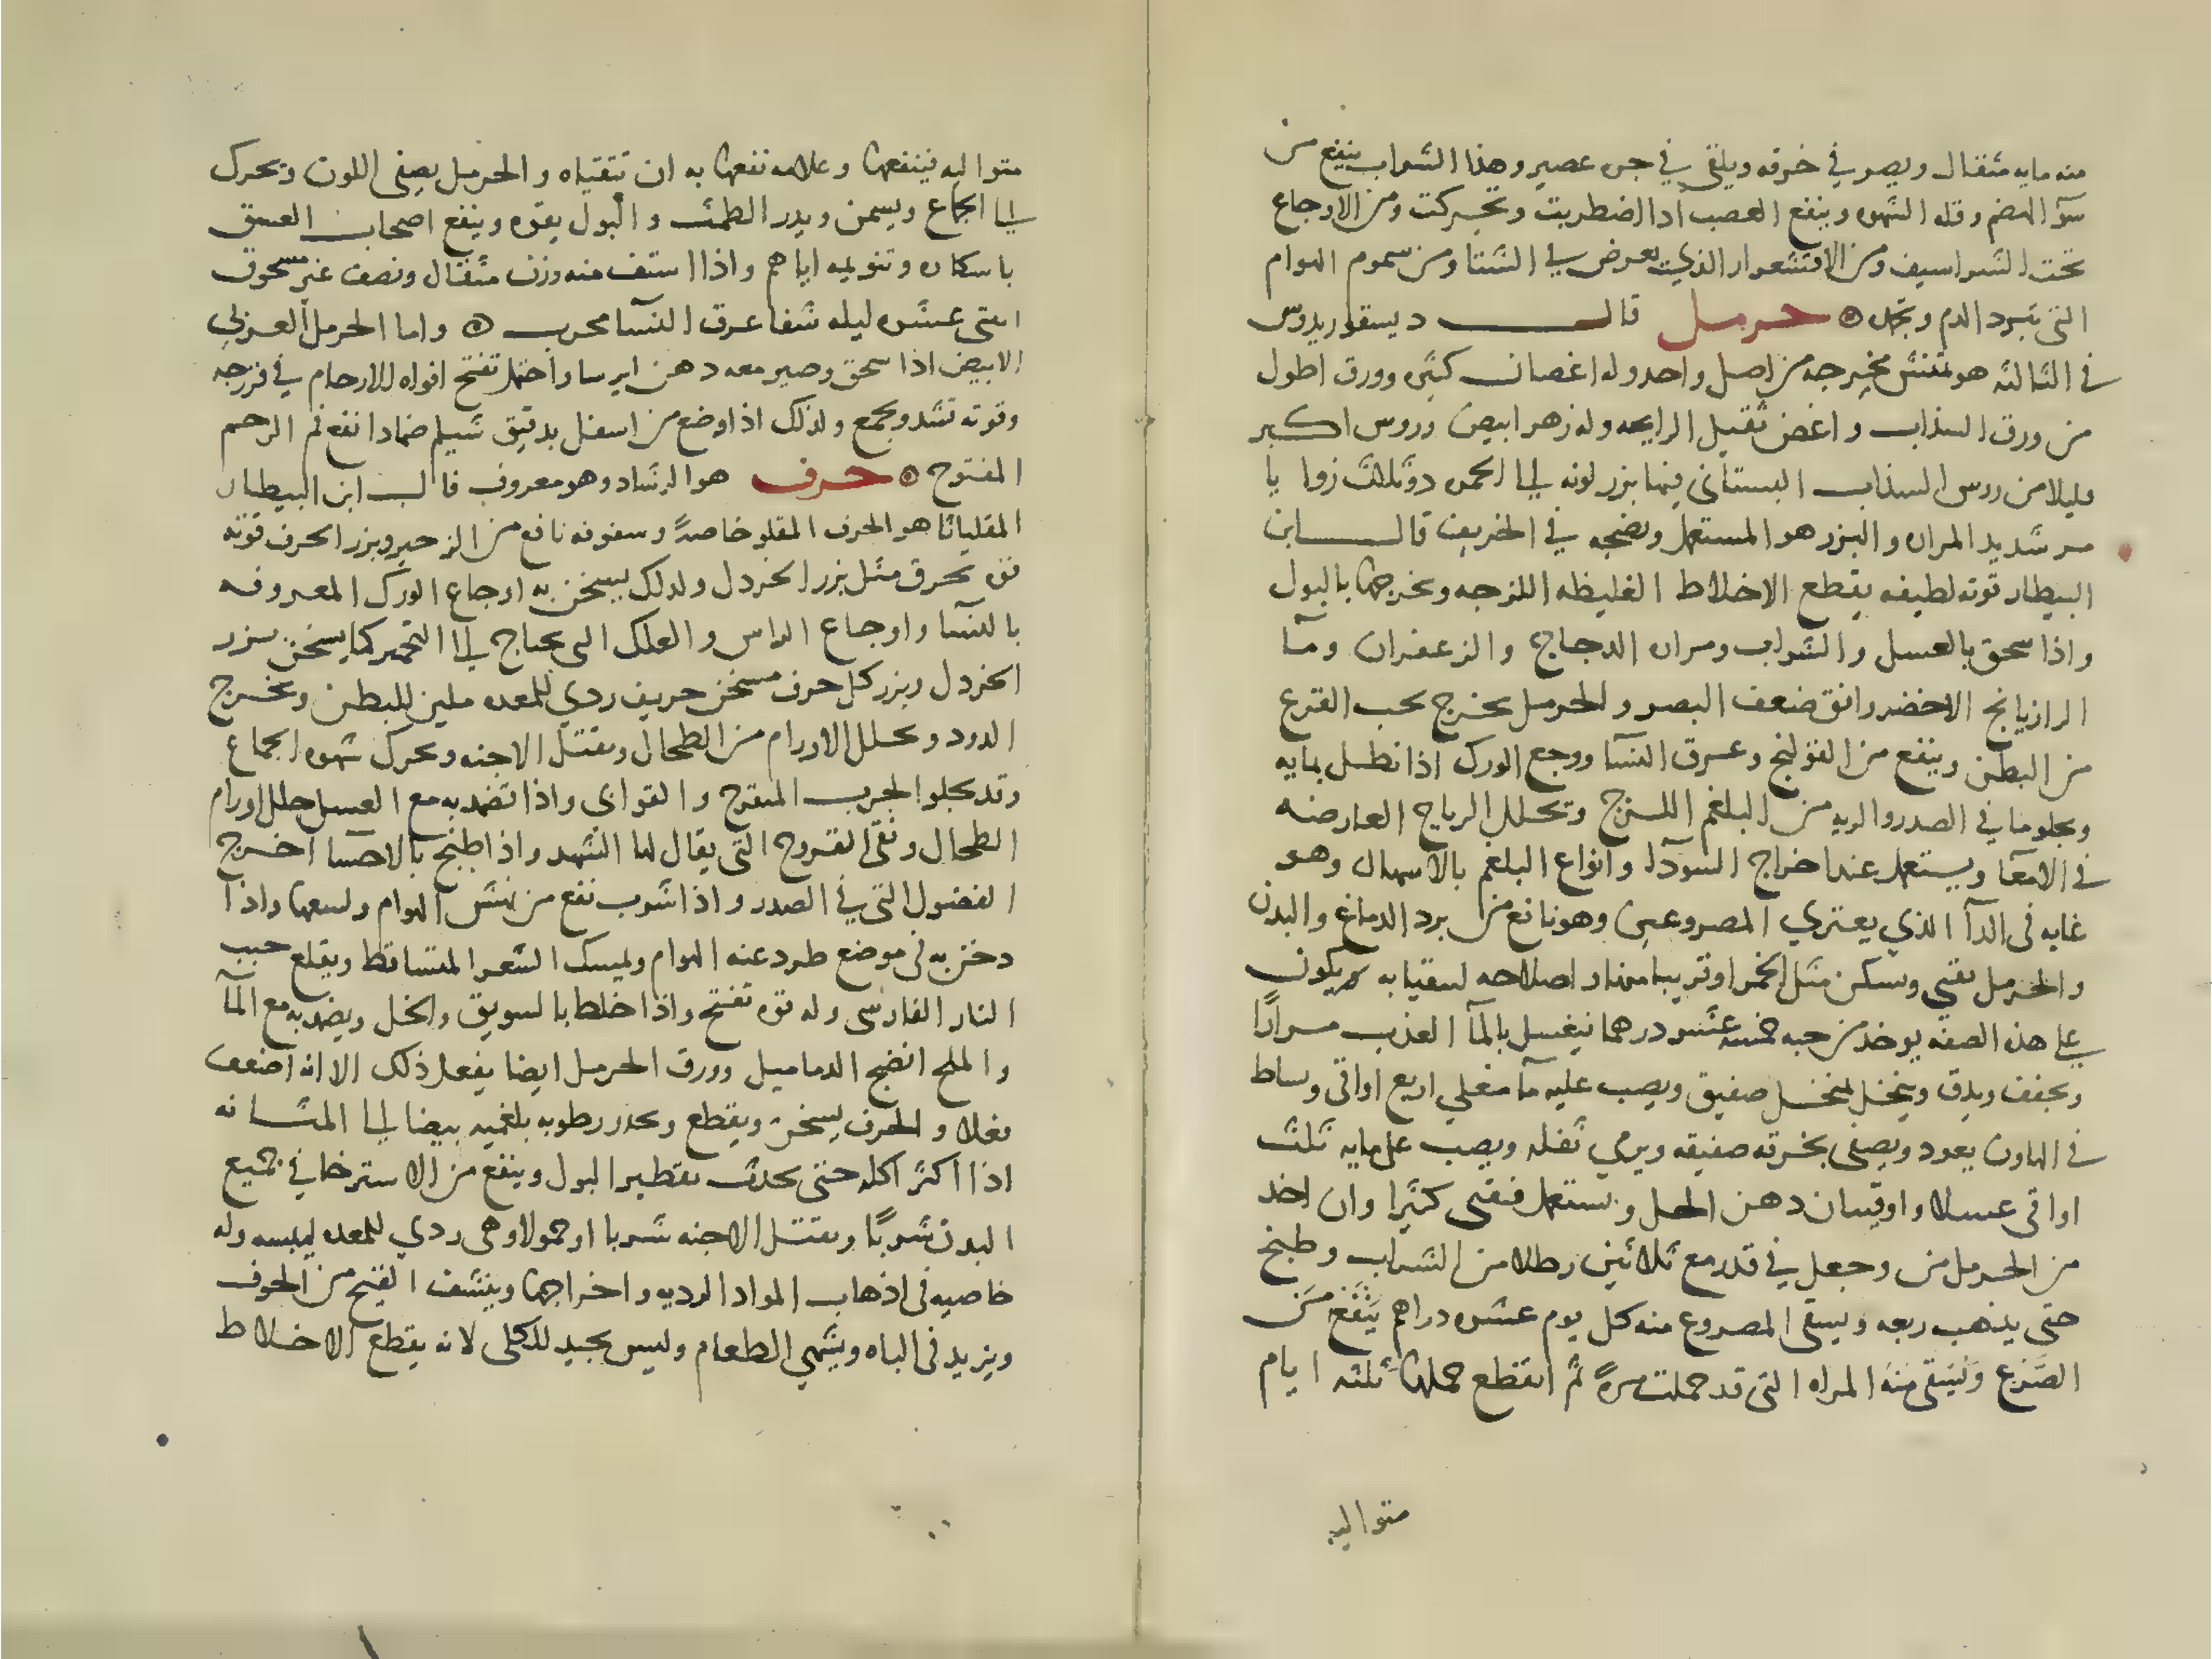 منه مايه مثقال ويصر في خرقه ويلقى في جره عصير وهذا الشراب ينفع من
سوٓ الهضم وقله الشهوه وينفع العصب اذا اضطربت وتحركت ومن الاوجاع
تحت الشراسيف ومن الاقشعرار الذي يعرض في الشتا ومن سموم الهوام
التي تبرد الدم وتجمده حرمل قال ديسقوريدوس
في الثالثه هو تمنش مخرجه من اصل واحد وله اغصان كثيره وورق اطول
من ورق السذاب واغض ثقيل الرايحه وله زهر ابيض وروس اكبر
قليلا من روس السذاب البستاني فيها بزر لونه الى الحمره ذو ثلاث زوايا
مر شديد المراره والبزر هو المستعمل ونضجه في الخريف قال ابن
البيطار قوته لطيفه يقطع الاخلاط الغليظه اللزجه ويخرجها بالبول
واذا سحق بالعسل والشراب ومراره الدجاج والزعفران ومآ
الرازيانج الاخضر وافق ضعف البصر والحرمل يخرج حب القرع
من البطن وينفع من القولنج وعرق النسا ووجع الورك اذا نطل بمايه
ويجلو ما في الصدر والريه من البلغم اللزج وتحلل الرياح العارضه
في الامعآ ويستعمل عند اخراج السودآ وانواع البلغم بالاسهال وهو
غايه في الدآ الذي يعتري المصروعين وهو نافع من برد الدماغ والبدن
والحرمل يقي ويسكر مثل الخمر او قريبا منها واصلاحه لسقيا به يكون
على هذه الصفه يوخذ من حبه خمسه عشر درهما فيغسل بالمآ العذب مرارا
ويجفف ويدق وينخل بمنخل صفيق ويصب عليه مآ مغلي اربع اواقي ويساط
في الهاون بعود ويصفى بخرقه صفيقه ويرمي ثفله ويصب على مايه ثلث
اواقي عسلا واوقيتان دهن الحل ويستعمل فيقي كثيرا وان اخذ
من الحرمل من وجعل في قدر مع ثلاثين رطلا من الشراب وطبخ
حتى يذهب ربعه ويسقى المصروع منه كل يوم عشره دراهم ينفع من
الصرع ويسقى منه المراه التي قد حملت مرة ثم انقطع حملها ثلثه ايام
متواليه
متواليه فينفعها وعلامه نفعها به ان تتقياه والحرمل يصفي اللون ويحرك
الى الجماع ويسمن ويدر الطمث والبول بقوه وينفع اصحاب العشق
باسكاره وتنويمه اياهم واذا استف منه وزن مثقال ونصف غير مسحوق
اثنى عشره ليله شفا عرق النسا مجرب واما الحرمل العربي
الابيض اذا سحق وصير معه دهن ايرسا واحتمل تفتح افواه الارحام في فرزجه
وقوته تشد وتجمع ولذلك اذا وضع من اسفل بدقيق شيلم ضمادا نفع فم الرحم
المفتوح حرف هو الرشاد وهو معروف قال ابن البيطار
المقلياثا هو الحرف المقلو خاصة وسفوفه نافع من الزحير وبزر الحرف قوته
قوه تحرق مثل بزر الخردل ولذلك يسخن به اوجاع الورك المعروفه
بالنسآ واوجاع الراس والعلل التي تحتاج الى التحمير كما يسخن بزر
الخردل وبزر كل حرف مسخن حريف ردي للمعده ملين للبطن ويخرج
الدود ويحلل الاورام من الطحال ويقتل الاجنه ويحرك شهوه الجماع
وقد يجلو الجرب المتقرح والقوابى واذا تضمد به مع العسل حلل اورام
الطحال ونقى القروح التي يقال لها الشهد واذا طبخ بالاحسا اخرج
الفضول التي في الصدر واذا شرب نفع من نهش الهوام ولسعها واذا
دخن به في موضع طرد عنه الهوام ويمسك الشعر المتساقط ويقلع حب
النار الفارسي وله قوه تفتح واذا خلط بالسويق والخل ويضمد به مع المآ
والملح انضج الدماميل وورق الحرمل ايضا يفعل ذلك الا انه اضعف
فعلا والحرف يسخن ويقطع ويحدر رطوبه بلغميه بيضا الى المثانه
اذا اكثر اكله حتى يحدث تقطير البول وينفع من الاسترخا في جميع
البدن شربًا ويقتل الاجنه شربا او حمولا وهي ردي للمعده ليبسه وله
خاصيه في اذهاب المواد الرديه واخراجها وينشف القيح من الجوف
ويزيد في الباه ويشهي الطعام وليس بجيد للكلى لانه يقطع الاخلاط